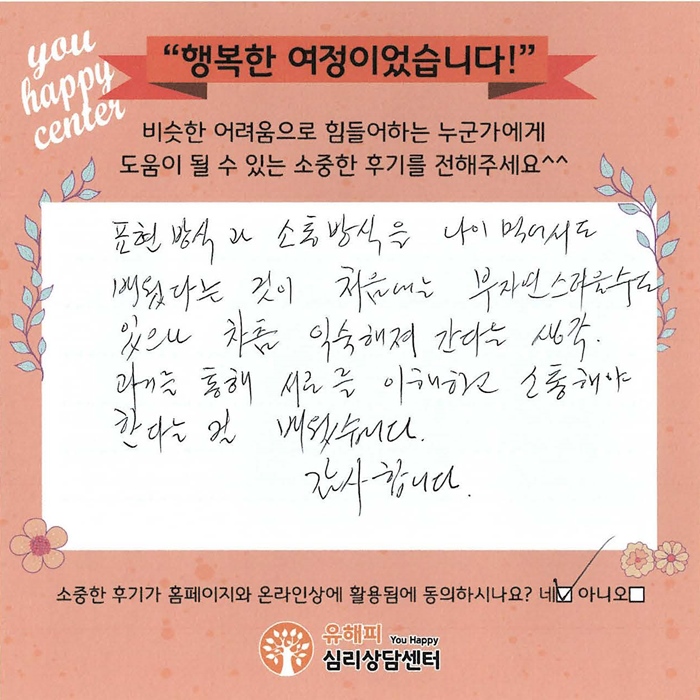 you
happy
center
“행복한 여정이었습니다!”
비슷한 어려움으로 힘들어하는 누군가에게
도움이 될 수 있는 소중한 후기를 전해주세요^^
표현방식과 소통방식을 나이 먹어서도
배웠다는 것이 처음에는 부자연스러울수도
있으나 차츰 익숙해져 간다는 생각.
과제를 통해 서로를 이해하고 소통해야
한다는 걸 배웠습니다.
감사합니다.
소중한 후기가 홈페이지와 온라인상에 활용됨에 동의하시나요? 네 아니오
유해피 You Happy
심리상담센터